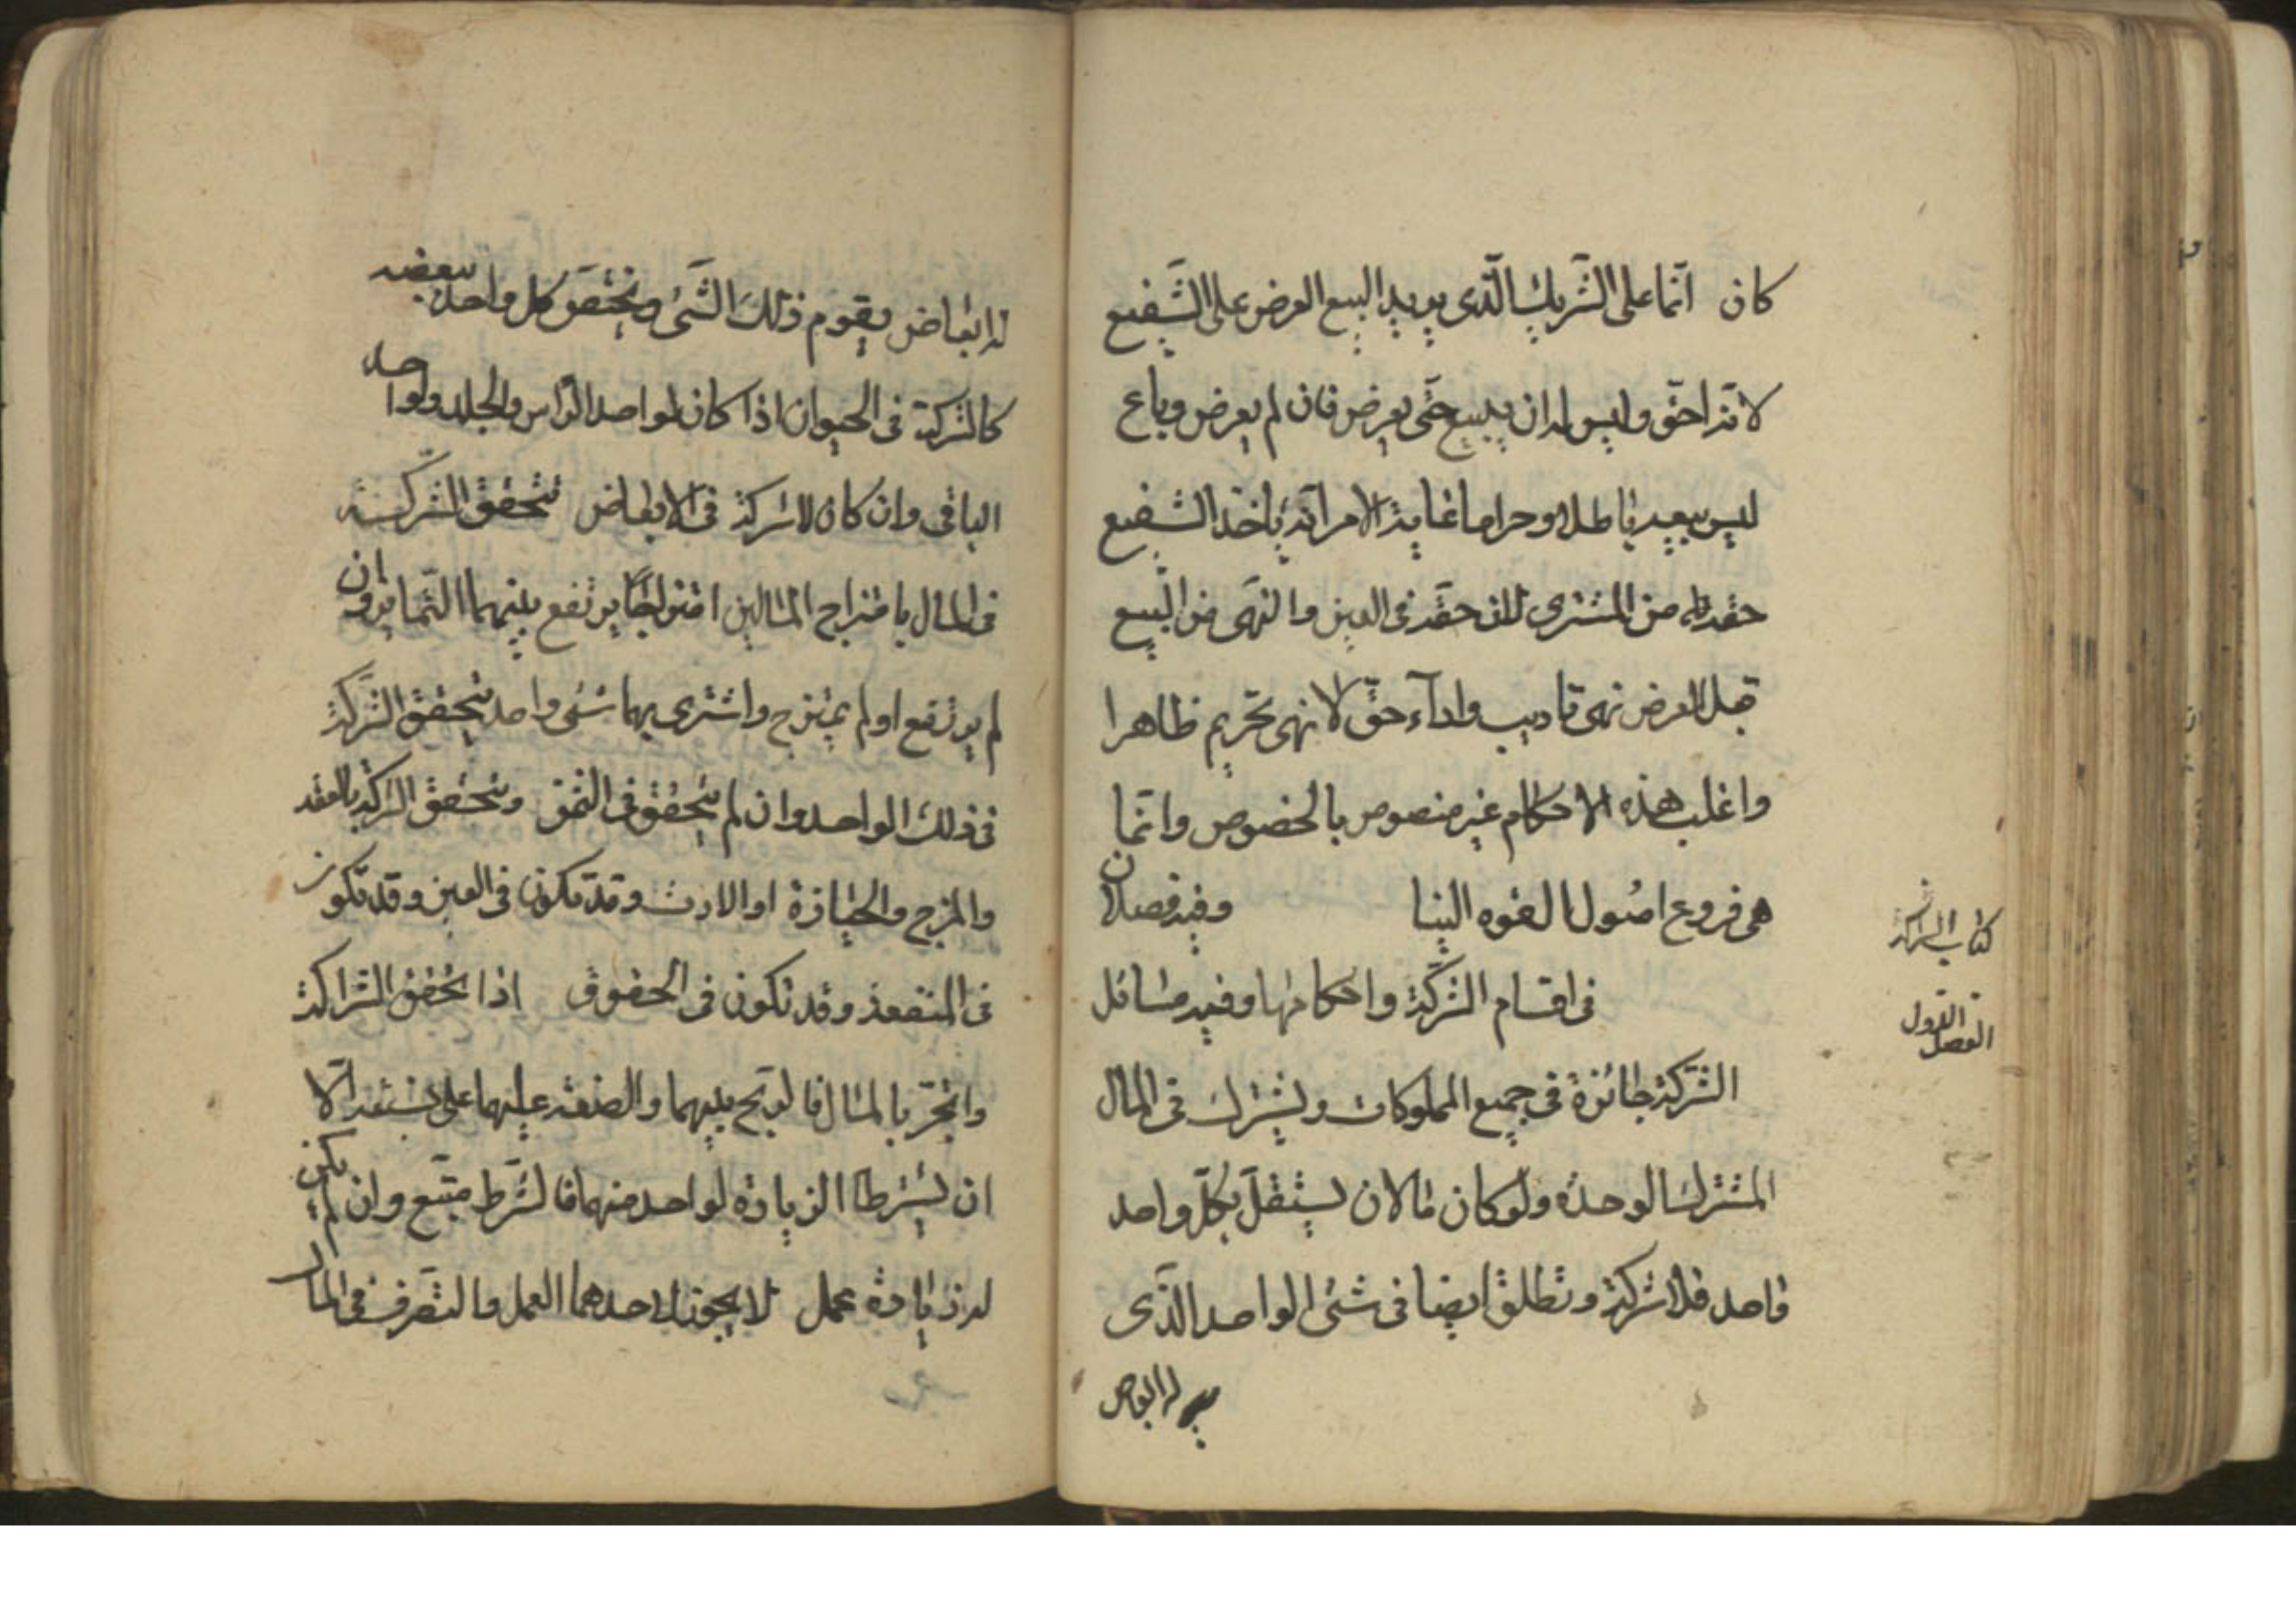 كان انما على الشريك الذى يريد البيع العرض على الشفيع
لانه احق وليس له ان يبيع حتى يعرض فان لم يعرض وباع
ليس بيعه باطلا وحراما غاية الامر انه ياخذ الشفيع
حقه من المشترى لان حقه فى العين والنهى من البيع
قبل العرض نهى تاديب واداء حق لا نهى تحريم ظاهرا
واغلب هذه الاحكام غير منصوص بالخصوص وانما
هى فروع اصول القوه الينا وفيه فصلان
كتاب الشركة
فى اقسام الشركة واحكامها وفيه مسائل
الفصل الاول
الشركة جائزة فى جميع المملوكات ويشترك فى المال
المشترك لوحده ولو كان مالان يستقل بكل واحد
واحد فلا شركة وتطلق ايضا فى شئى الواحد الذى
له ابعاض
له ابعاض يقوم ذلك الشئى ويختص كل واحد ببعضه
كالشركة فى الحيوان اذا كان لواحد الراس والجلد ولواحد
الباقى وان كان لا شركة فى الابعاض تتحقق الشركة
فى المال بامتزاج المالين امتزاجا يرتفع بينهما التمايز وان
لم يرتفع او لم يمتزج واشترى بهما شئى واحد يتحقق الشركة
فى ذلك الواحد وان لم يتحقق فى الثمن وتتحقق الشركة بالعقد
والمزج والحيازة او الارث وقد تكون فى العين وقد تكون
فى المنفعة وقد تكون فى الحقوق اذا تحقق الشراكة
واتجر بالمال فالربح بينهما والضعة عليهما على نسبته الا
ان يشرطا الزيادة لواحد منهما فالشرط متبع وان لم يكن
له زيادة عمل لا يجوز لاحدهما العمل والتصرف فى المال